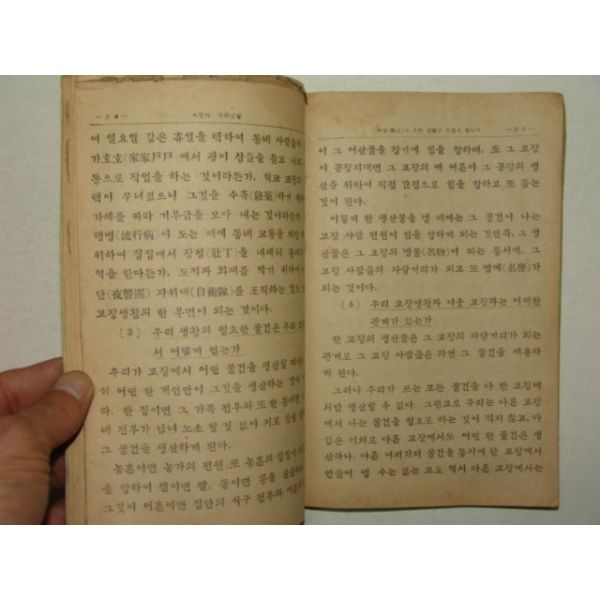 여 일요일 같은 휴일을 택하여 동네 사람들이
가호호(家家戶戶)에서 괭이 삽들을 들고 나와
동으로 작업을 하는 것이라든가, 학교 교장의
택이 무너졌으니 그것을 수축(修築)하기 위하
가세를 따라 기부금을 모아 내는 것이라든가,
행병(流行病)이 도는 때에 동네 교통을 차단하
위하여 집집에서 장정(壯丁)을 내세워 동네
혁을 한다든가, 도적과 화재를 막기 위하여
단(夜警團) 자위대(自衛隊)를 조직하는 것도
고장생활의 한 부면이 되는 것이다.
(3) 우리 생활의 필요한 물건은 우리 고
서 어떻게 얻는가
우리가 고장에서 어떤 물건을 생산할 때에
히 어떤 한 개인만이 그것을 생산하는 것이
라. 한 집이면 그 가족 전부와 또한 동네면
네 전부가 남녀 노소 할 것 없이 서로 힘을
그 물건을 생산하게 된다.
농촌이면 농가의 전원, 또 농촌의 집집이 서로
을 합하여 쌀이면 쌀, 콩이면 콩을 만들고
그것이 어촌이면 집안의 식구 전부와 어촌의
이 그 어산물을 잡기에 힘을 합하며, 또 그 고장
이 공장지대면 그 고장의 애 어른이 그 공장의 생
산을 위하여 직접 간접으로 힘을 합하고 또 돕는
것이 된다.
이렇게 한 생산물을 낼 때에는 그 물건이 나는
고장 사람 전원이 힘을 합하게 되는 것인즉, 그 생
산물은 그 고장의 명물(名物)이 되는 동시에, 그
고장 사람들의 자랑거리가 되고 또 명예(名譽)가
되는 것이다.
(4) 우리 고장생활과 이웃 고장과는 어떠한
관계가 있는가
한 고장의 생산물은 그 고장의 자랑거리가 되는
관계로 그 고장 사람들은 자연 그 물건을 애용하
게 된다.
그러나 우리가 쓰는 모든 물건을 다 한 고장에
서만 생산할 수 없다. 그런고로 우리는 다른 고장
에서 나는 물건을 필요로 하는 것이 적지 않고, 다
같은 이치로 다른 고장에서도 어떤 한 물건은 생
산하나, 다른 여러가지 물건을 동시에 한 고장에서
만들어 낼 수는 없는 고로 역시 다른 고장에서는